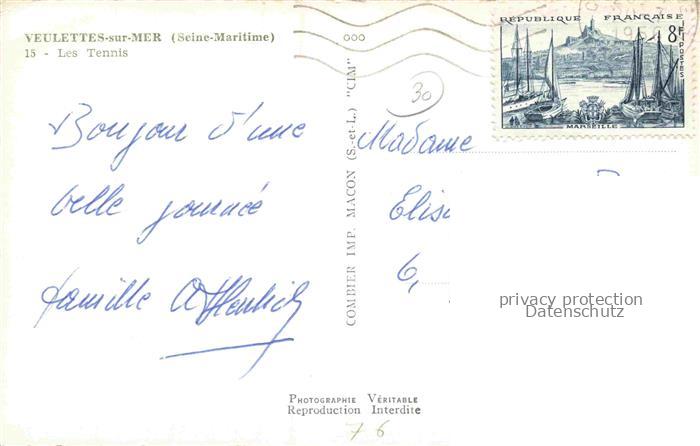 VEULETTES-sur-MER (Seine-Maritime)
15 - Les Tennis
Bonjour d'une
belle journée
famille
COMBIER IMP. MACON (S.-et-L.) "CIM"
30
RÉPUBLIQUE FRANÇAISE
8F
POSTES
MARSEILLE
Madame
Elis
6,
privacy protection
Datenschutz
PHOTOGRAPHIE VÉRITABLE
Reproduction Interdite
76